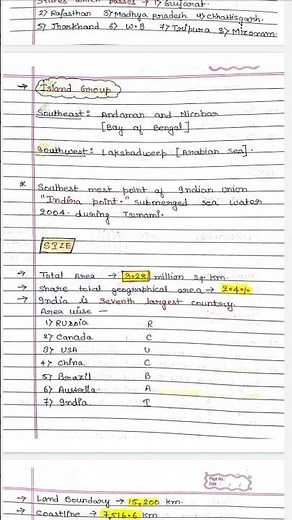 States which passes → 1) Gujarat
2) Rajasthan 3) Madhya Pradesh 4) Chhattisgarh
5) Jharkhand 6) W.B 7) Tripura 8) Mizoram
→ Island Group
Southeast: Andaman and Nicobar
[Bay of Bengal]
Southwest: Lakshadweep [Arabian Sea].
* Southest most point of Indian union
"Indira point." submerged sea water
2004 during Tsunami.
SIZE
→ Total Area → 3.28 million sq km.
→ Share total geographical area → 2.4%
→ India is seventh largest country
Area wise —
1) Russia R
2) Canada C
3) USA U
4) China C
5) Brazil B
6) Austrella A
7) India I
Page No.
Date
→ Land Boundary → 15,200 km.
→ Coastline → 7,516.6 km